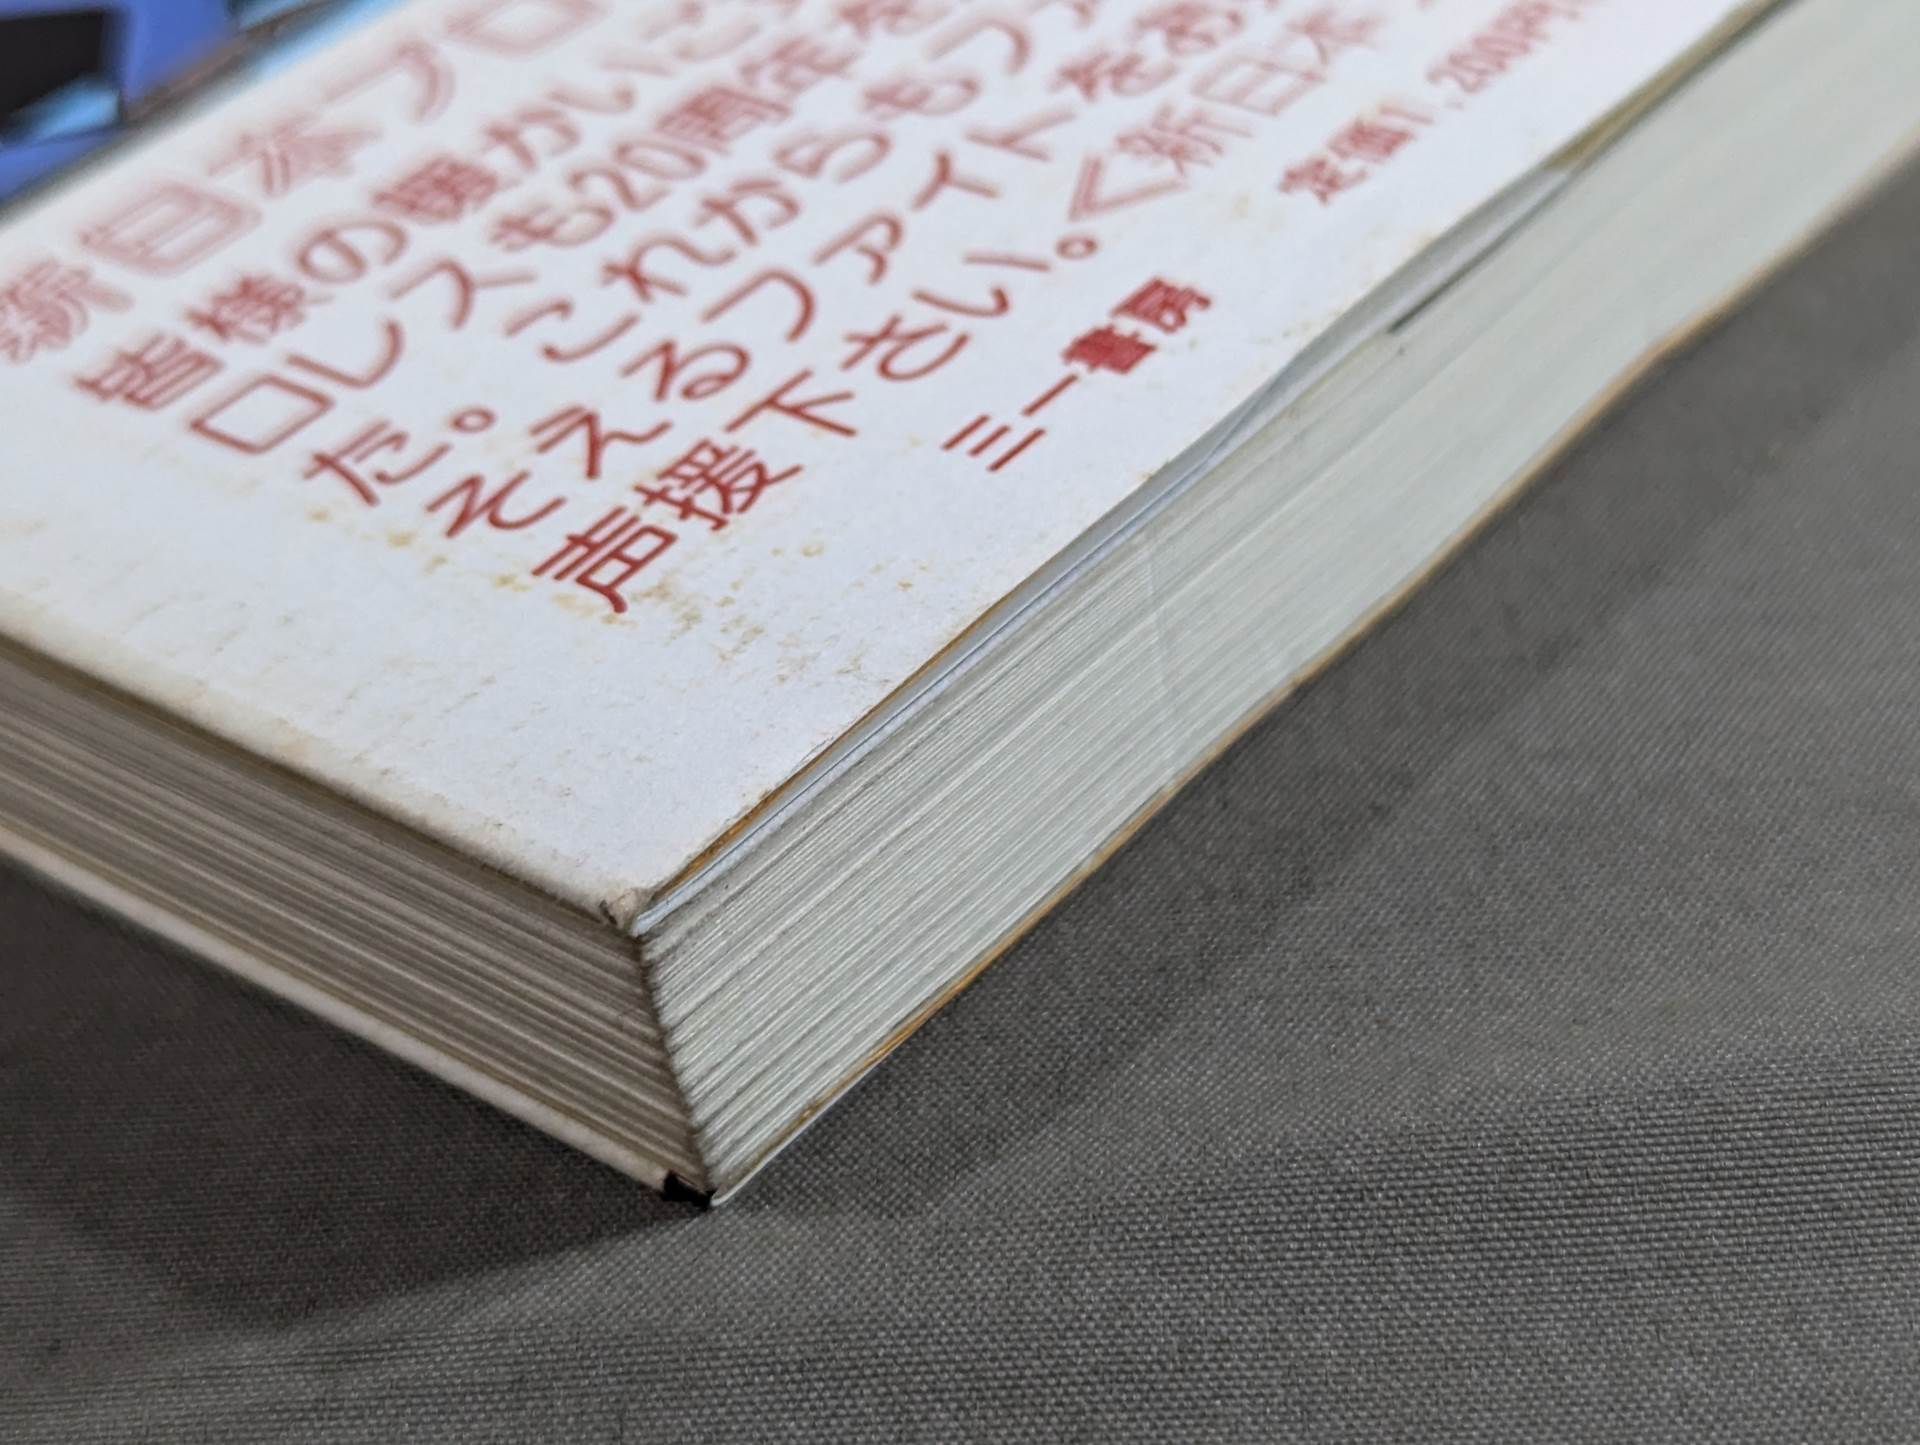 新日本プロ
皆様の暖かいご
ロレスも20周年を
た。これからもフ
そえるファイトをお
声援下さい。＜新日本
定価1,200円
三一書房